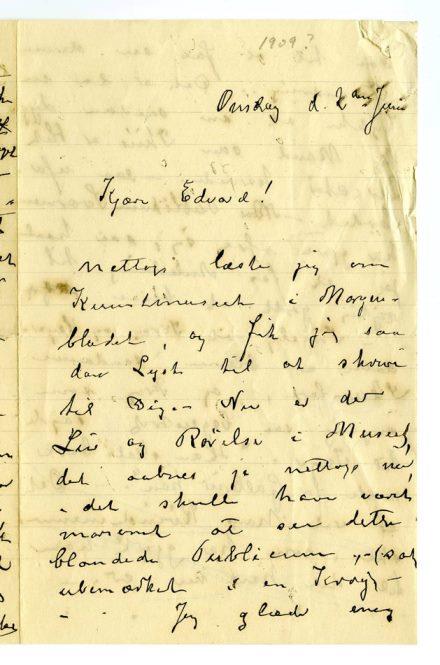 1909?
Onsdag d. 2den Juni
Kjære Edvard!
Nettop læste jeg om
Kunstmuseet i Morgen-
bladet, og fik jeg saa
den Lyst til at skrive
til Dig. - Nu er der
Liv og Rørelse i Museet,
det aabnes jo nettop nu,
- det skulle have været
morsomt at se dette
blandede Publicum, - (saa
ubemærket i en Krog) -
- Jeg glæder mig